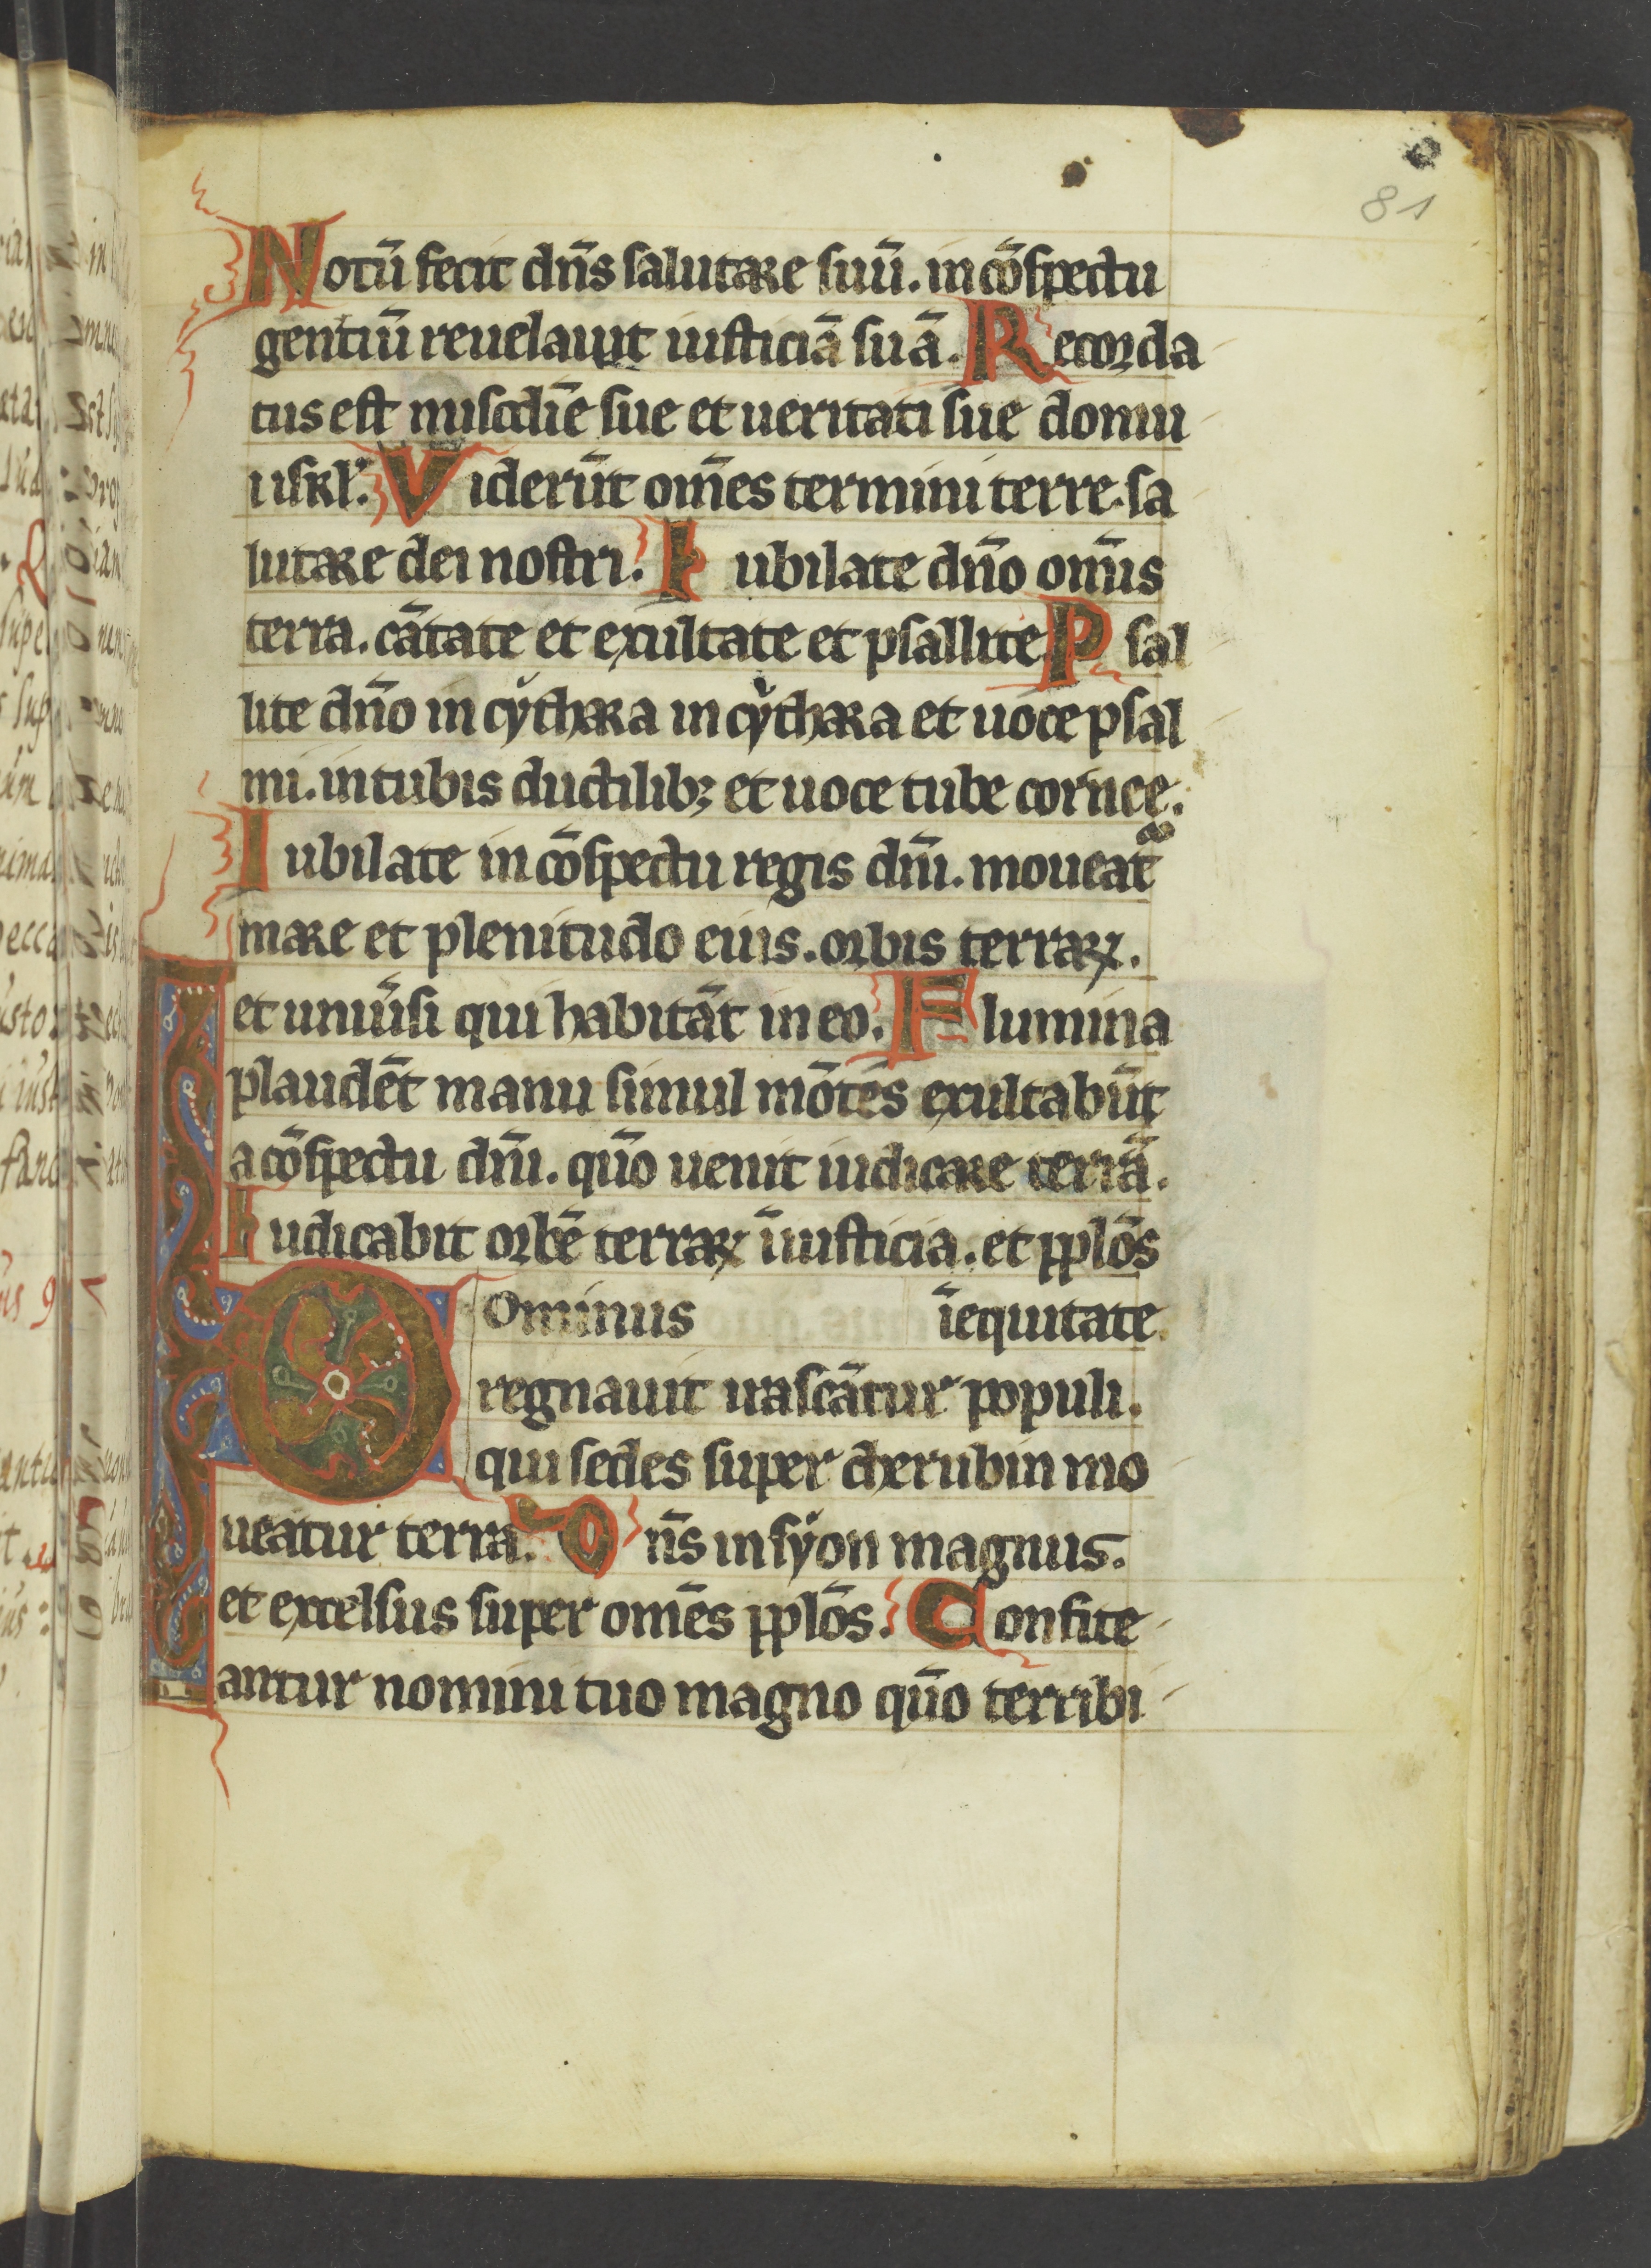 81
Notū fecit dn̄s salutare suū. in cōspectu
gentiū reuelauit iusticiā suā. Recorda
tus est misc̄die sue et ueritati sue domui
isrl'. Viderūt om̄es termini terre. sa
lutare dei nostri. Iubilate dn̄o om̄is
terra. cātate et exultate et psallite. Psal
lite dn̄o in cythara in cythara et uoce psal
mi. in tubis ductilibꝫ et uoce tube cornee.
Iubilate in cōspectu regis dn̄i. moueat᷑
mare et plenitudo eius. orbis terraꝝ.
et uniūsi qui habitāt in eo. Flumina
plaudēt manu simul mōtes exultabūt
a cōspectu dn̄i. quō uenit iudicare terrā.
Iudicabit orbē terraꝝ ī iusticia. et pplōs
Dominus īequitate.
regnauit irascātur populi.
qui sedes super cherubin mo
ueātur terra. Dn̄s in syon magnus.
et excelsus super om̄es pplōs. Confite
antur nomini tuo magno quō terribi